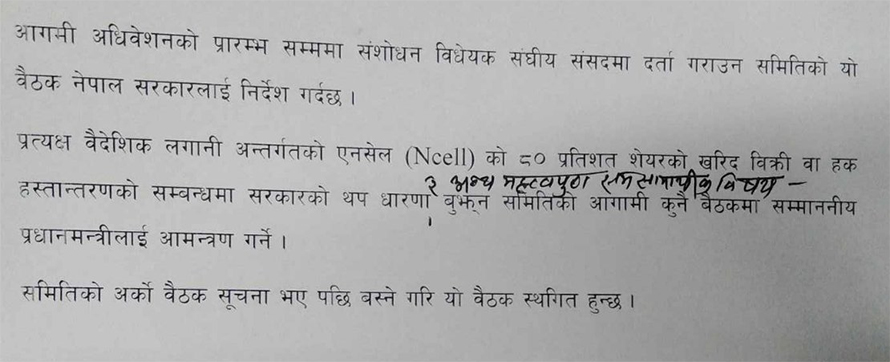 आगमी अधिवेशनको प्रारम्भ सम्ममा संशोधन विधेयक संघीय संसदमा दर्ता गराउन समितिको यो
वैठक नेपाल सरकारलाई निर्देश गर्दछ ।
प्रत्यक्ष वैदेशिक लगानी अन्तर्गतको एनसेल (Ncell) को ८० प्रतिशत शेयरको खरिद विक्री वा हक
र अन्य महत्वपूर्ण समसामायीक विषय –
हस्तान्तरणको सम्बन्धमा सरकारको थप धारणा बुझ्न समितिको आगामी कुनै बैठकमा सम्माननीय
प्रधानमन्त्रीलाई आमन्त्रण गर्ने ।
समितिको अर्को वैठक सूचना भए पछि बस्ने गरि यो वैठक स्थगित हुन्छ ।